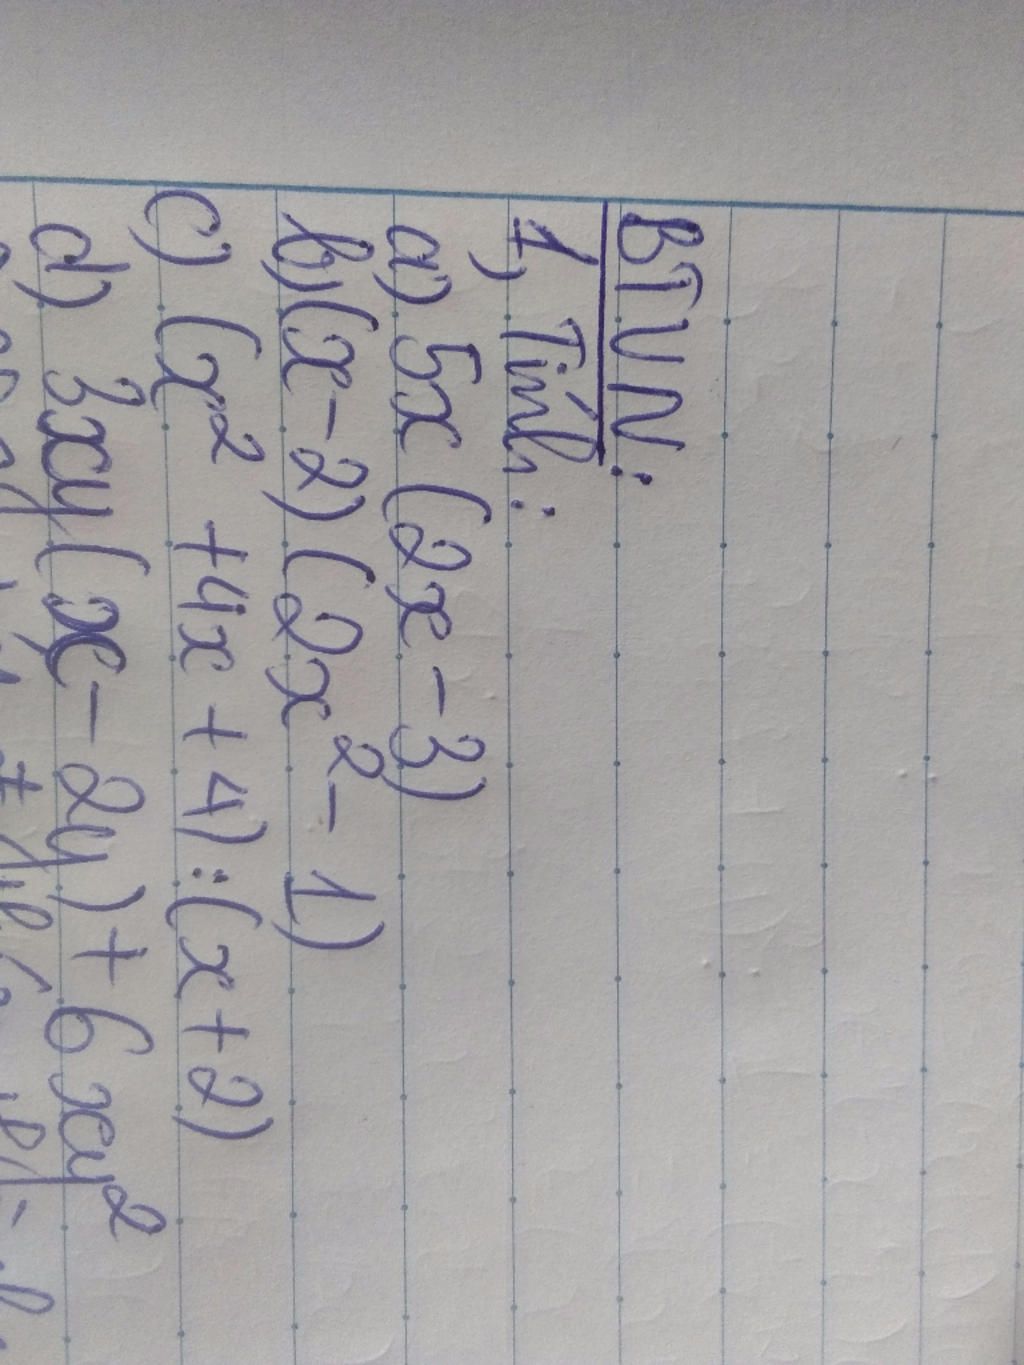 BTVN:
1, Tính:
a) 5x (2x - 3)
b) (x - 2) (2x² - 1)
c) (x² + 4x + 4) : (x + 2)
d) 3xy (x - 2y) + 6xy²